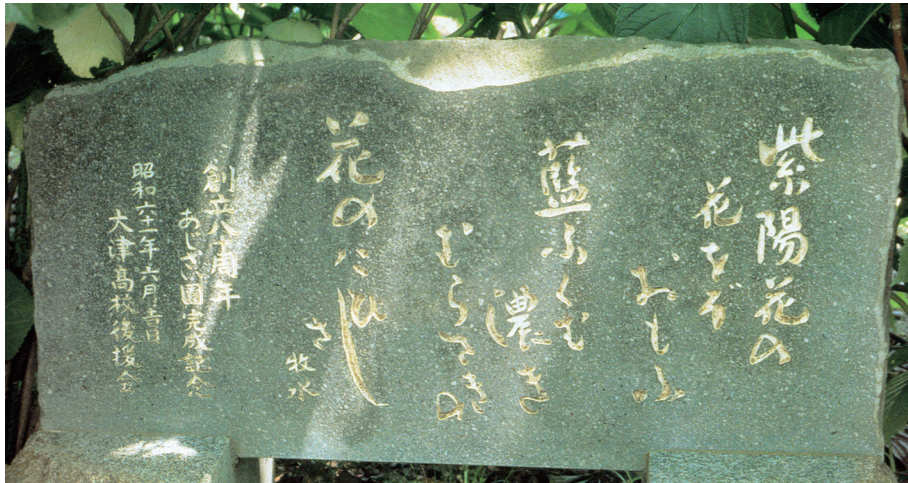 紫陽花の
花をぞ
おもふ
藍ふくむ
濃き
むらさきの
花のこひし
さ
牧水
創立八十周年
あじさい園完成記念
昭和六十一年六月吉日
大津高校後援会